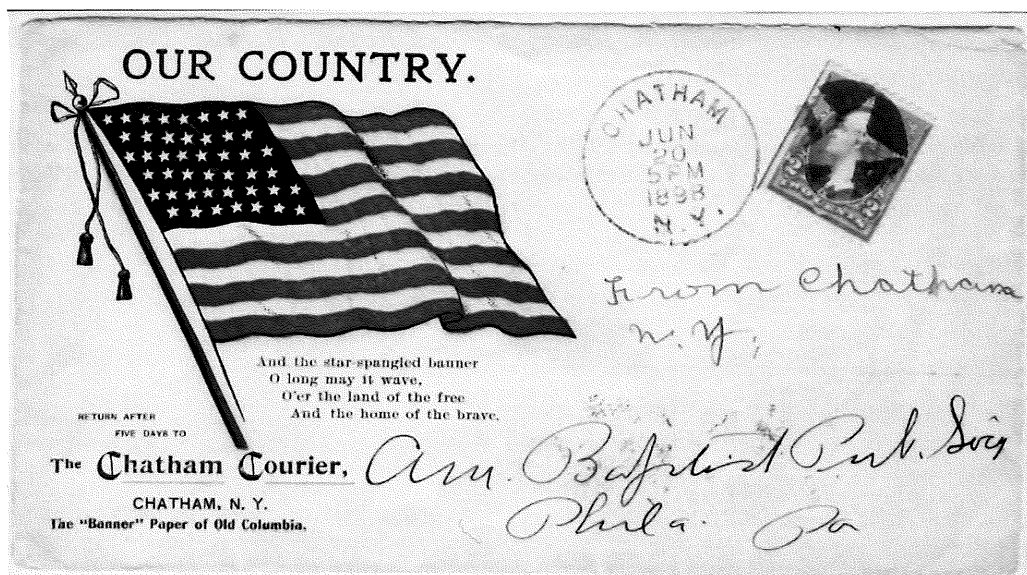 OUR COUNTRY.
CHATHAM
JUN
20
5 PM
1898
N.Y.
2 2
From Chatham
N.Y.
And the star-spangled banner
O long may it wave,
O'er the land of the free
And the home of the brave.
RETURN AFTER
FIVE DAYS TO
The Chatham Courier,
CHATHAM, N. Y.
The "Banner" Paper of Old Columbia.
Am. Baptist Pub. Socy
Phila. Pa